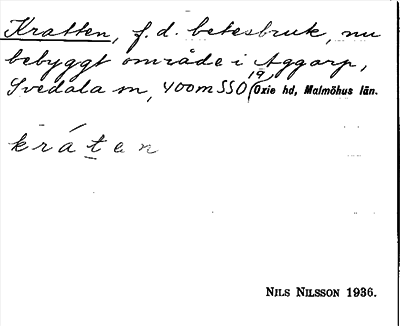 Kratten, f.d. betesbruk, nu
bebyggt område i Aggarp,
Svedala sn, 400m SSO 19 (Oxie hd, Malmöhus län.
kråten
NILS NILSSON 1936.